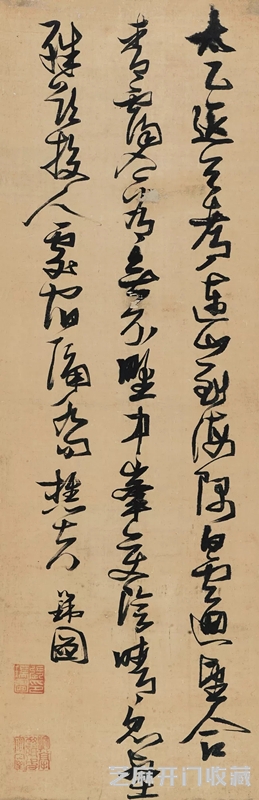 太乙近天都連山到海隅白雲迴望合
青靄入看無分野中峯變陰晴衆壑
殊欲投人處宿隔水問樵夫
瑞圖
芝麻开门收藏